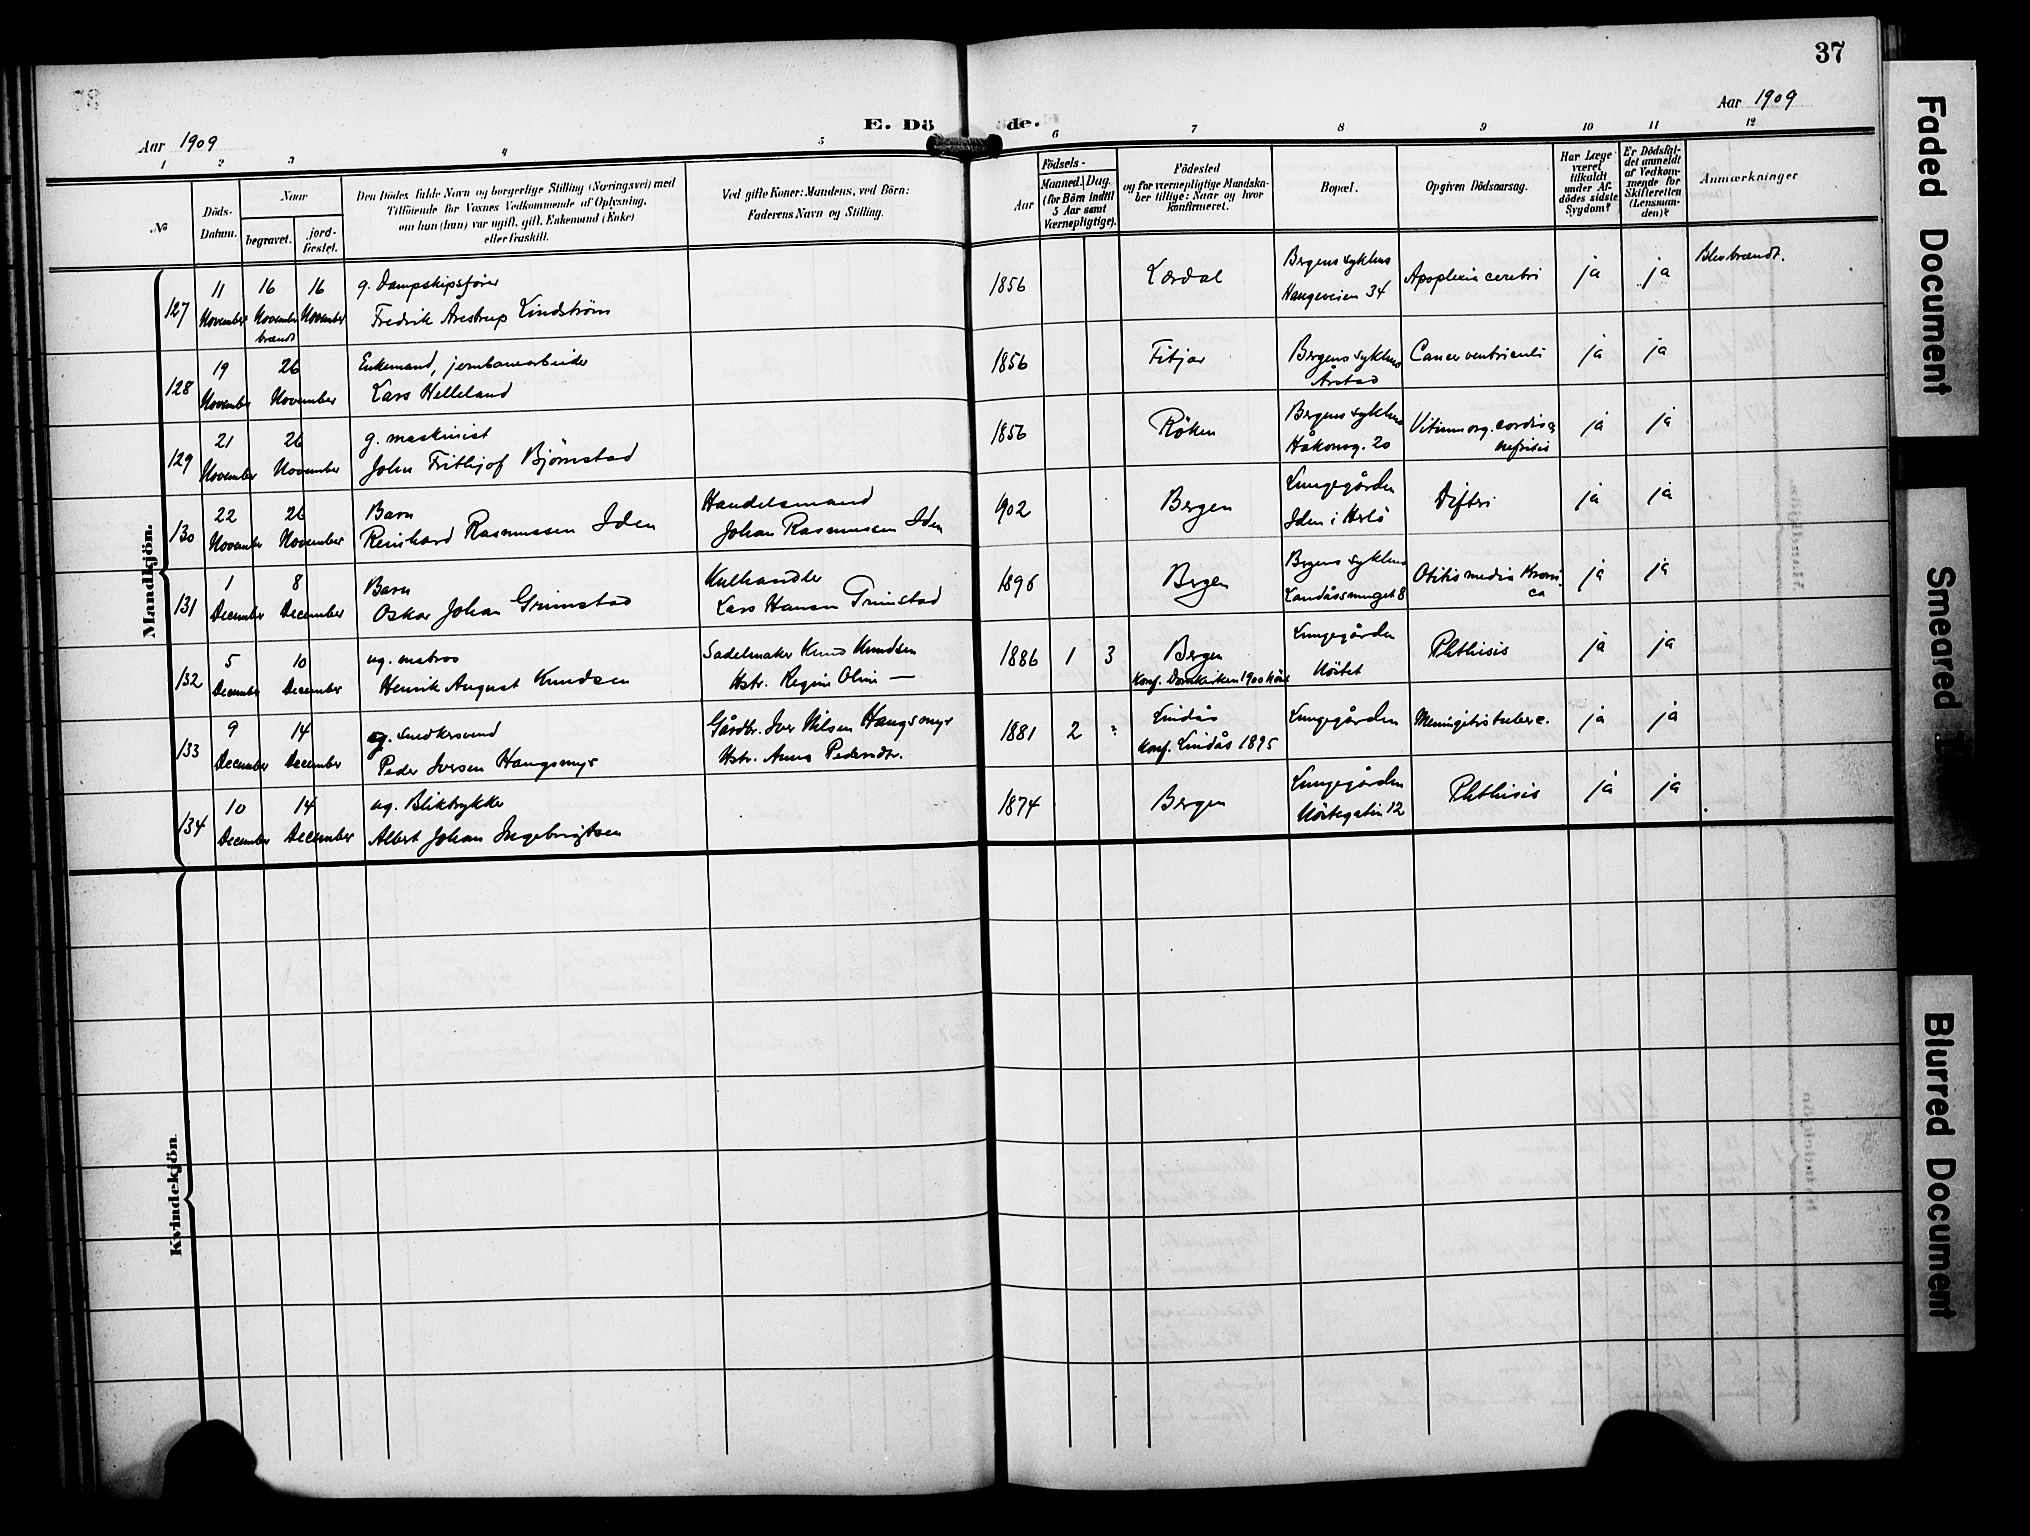 37
Aar 1909
E. Döde.
Aar 1909
1 2 3 4 5 6 7 8 9 10 11 12
№
Döds-Datum.
Naar
begravet.
jord-fæstet.
Den Dödes fulde Navn og borgerlige Stilling (Næringsvei) med
Tilföiende for Voxnes Vedkommende af Oplysning,
om han (hun) var ugift, gift, Enkemand (Enke)
eller fraskilt.
Ved gifte Koner: Mandens, ved Börn:
Faderens Navn og Stilling.
Födsels-
Aar
Maaned. Dag.
(for Börn indtil
5 Aar samt
Værnepligtige).
Födested
og for værnepligtige Mandska-
ber tillige: Naar og hvor
konfirmeret.
Bopæl.
Opgiven Dödsaarsag.
Har Læge
været
tilkaldt
under Af-
dödes sidste
Sygdom?
Er Dödsfal-
det anmeldt
af Vedkom-
mende for
Skifteretten
(Lensman-
den)?
Anmærkninger
Mandkjön.
127 11 November 16 November brændt 16 November g. Dampskipsfører
Fredrik Arestrup Lindstrøm 1856 Lærdal Bergens sykhus
Haugeveien 34 Apoplexia cerebri ja ja Blev brændt.
128 19 November 26 November Enkemand, jernbanearbeider
Lars Helleland 1856 Fitjar Bergens sykhus
Årstad Cancer ventriculi ja ja
129 21 November 26 November g. maskinist
John Frithjof Bjørnstad 1856 Røken Bergens sykhus
Håkonsg. 20 Vitium org. cordis &
nefritis ja ja
130 22 November 26 November Barn
Reinhard Rasmussen Iden Handelsmand
Johan Rasmussen Iden 902 Bergen Lungegården
Iden i Herlö Difteri ja ja
131 1 December 8 December Barn
Oskar Johan Grimstad Kulhandler
Lars Hansen Grimstad 1896 Bergen Bergens sykhus
Landåssmuget 8 Otitis media kroni-
ca ja ja
132 5 December 10 December ug. matros
Henrik August Knudsen Sadelmaker Knud Knudsen
Hstr. Regine Oline — 1886 1 3 Bergen
Konf. Domkirken 1900 høst Lungegården
Nöstet Phthisis ja ja
133 9 December 14 December ug. snedkersvend
Peder Iversen Haugsmyr Gårdbr. Iver Nilsen Haugsmyr
Hstr. Anna Pedersdtr. 1881 2 Lindås
Konf. Lindås 1895 Lungegården Meningitis tuberc. ja ja
134 10 December 14 December ug. Bliktrykker
Albert Johan Ingebrigtsen 1874 Bergen Lungegården
Nöstegaten 12 Phthisis ja ja
Kvindekjön.
Faded Document
Smeared
Blurred Document